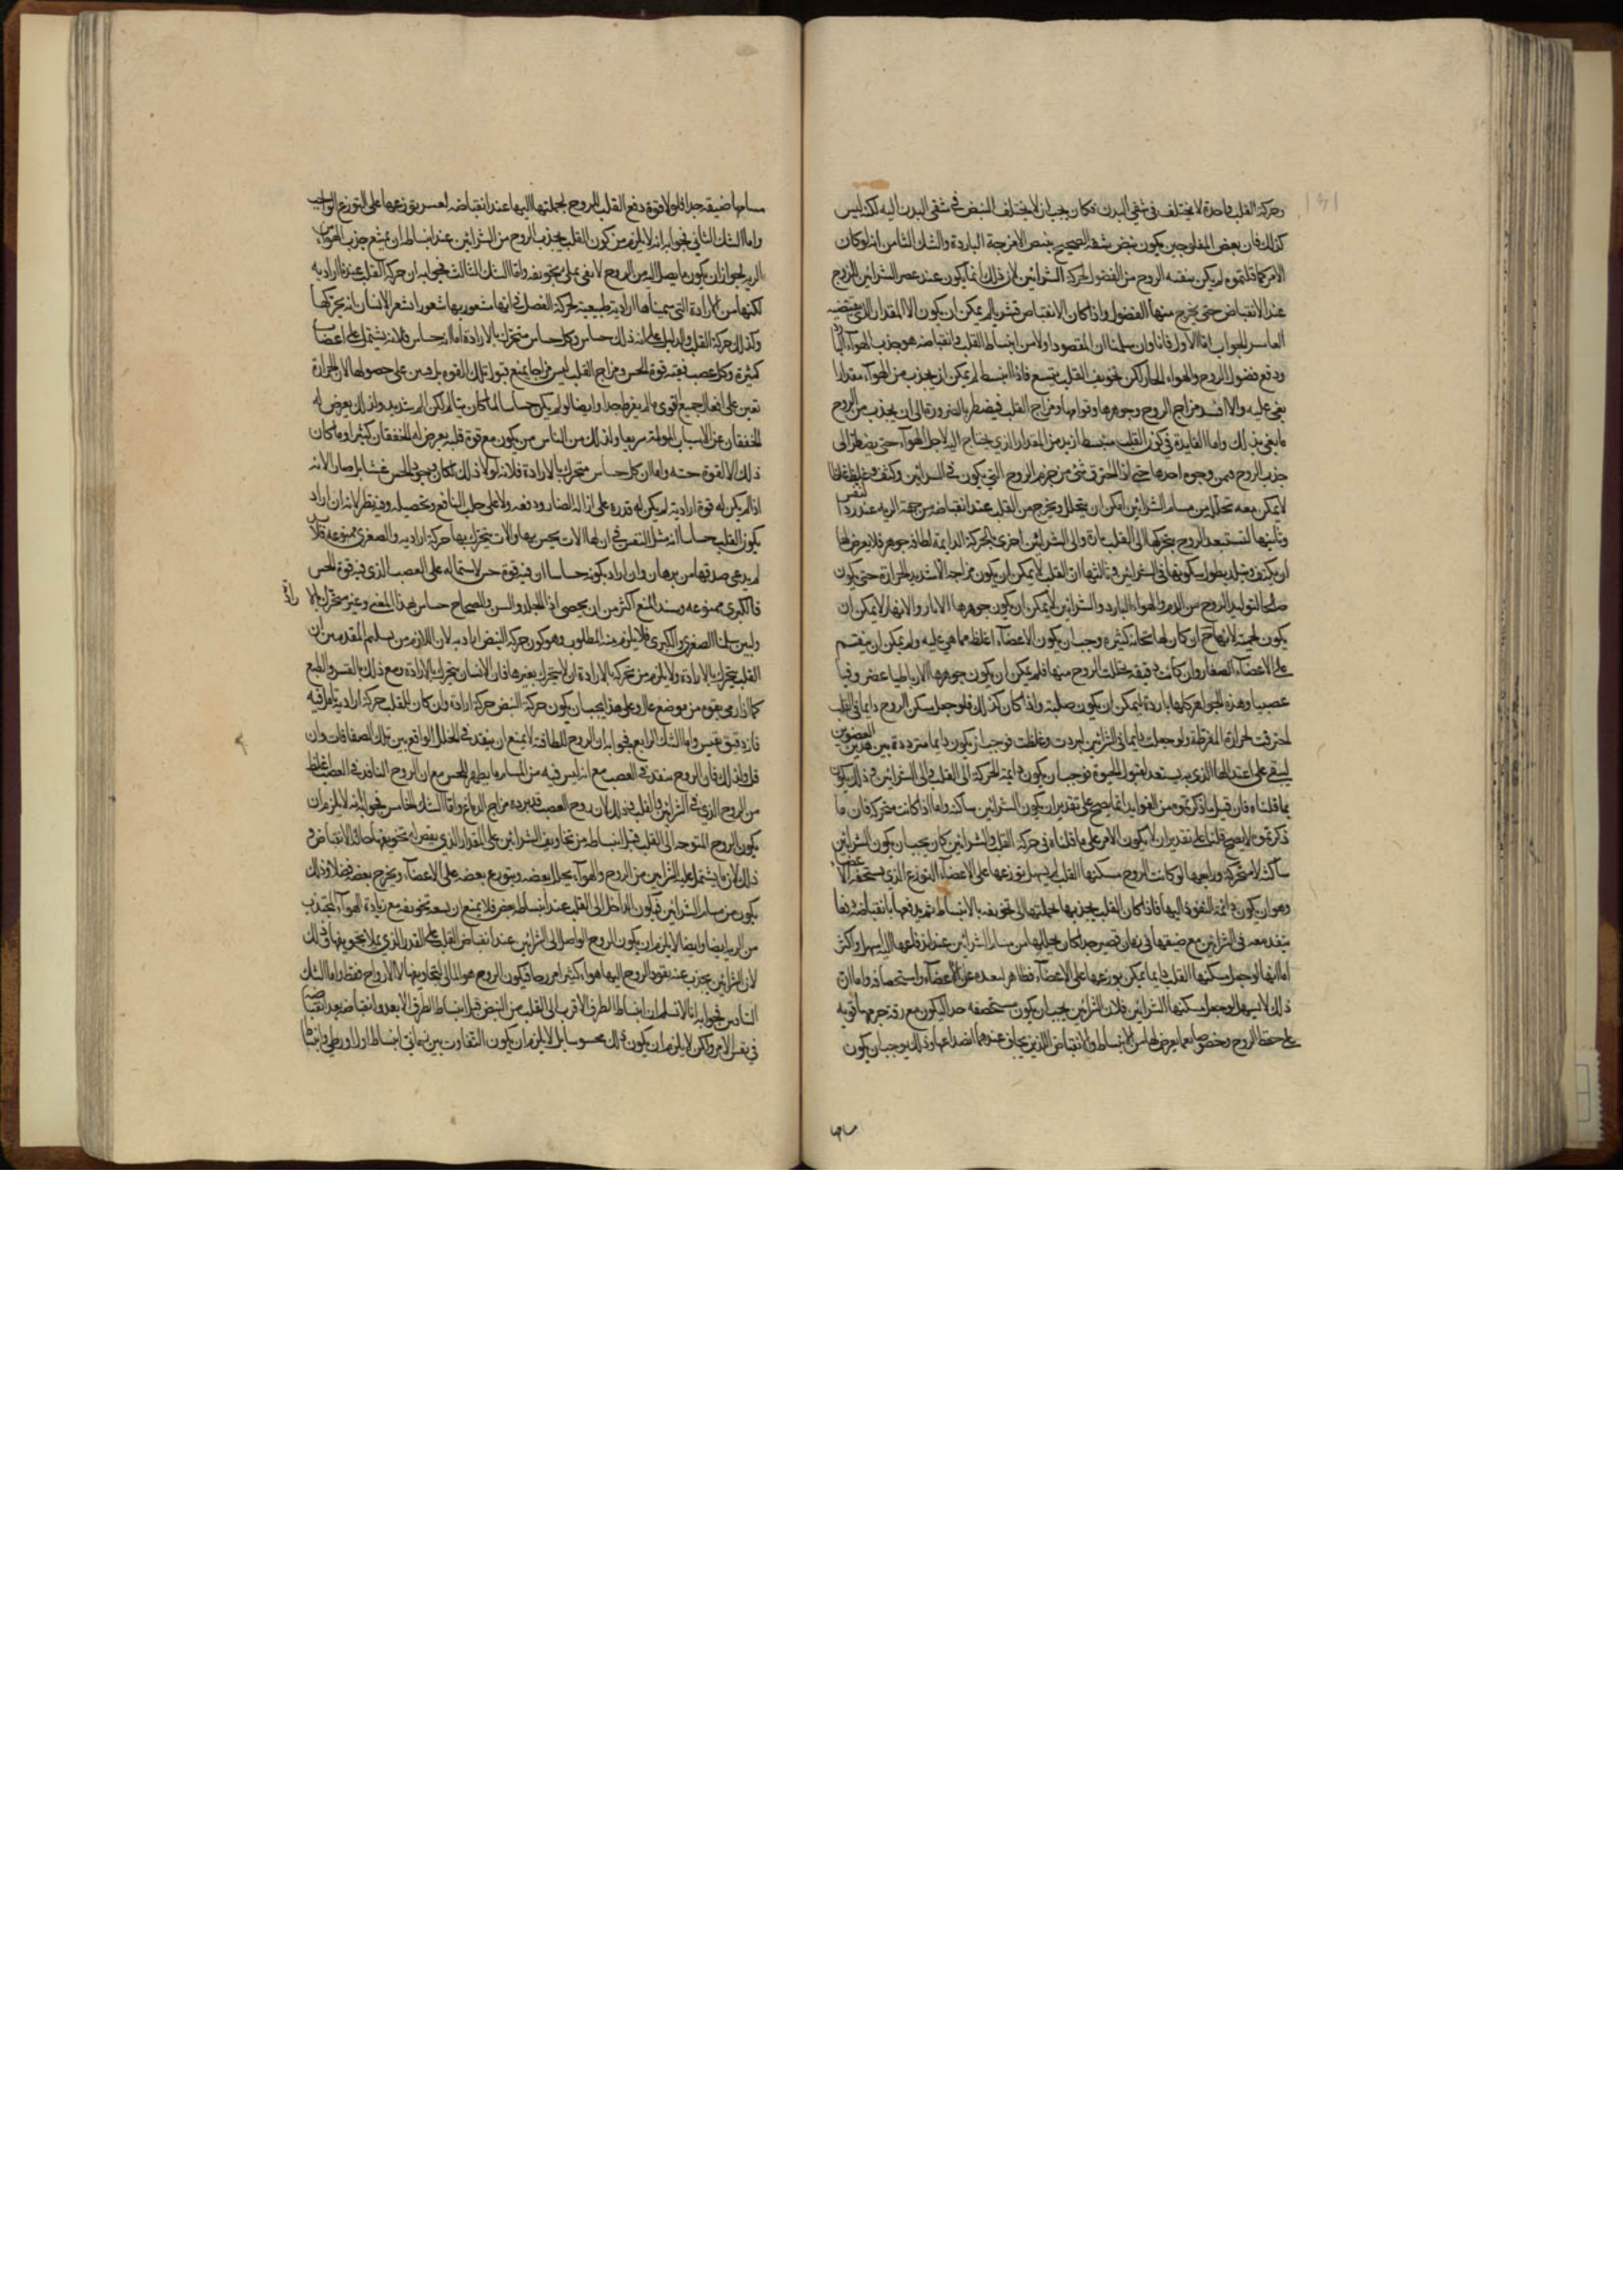 وحركة القلب واحدة لا يختلف في شقي البدن فكان يجب ان لا يختلف النبض في شقي البدن اليه لكنه ليس
كذلك فان بعض المفلوجين يكون نبض شقه الصحيح بنبض الامزجة الباردة والشك الثامن انه لو كان
الامر كما قلتموه لم يكن ينقيه الروح من الفضول لحركة الشرائين لان ذلك انما يكون عند عصر الشرائين الروح
عند الانقباض حتى يخرج منها الفضول واذا كان الانقباض قسريا لم يمكن ان يكون الا المقدار الذي يقتضيه
القاسر الجواب اما الاول فانا وان سلمنا ان المقصود اولا من انبساط القلب وانقباضه هو جذب الهواء البارد
ودفع فضول الروح والهواء الحار لكن تجويف القلب يتسع فاذا انبسط لم يمكن ان يجذب من الهواء مقدارا
يفي عليه والا افسد مزاج الروح وجوهرها وقوامها ومزاج القلب فيضطر بالضرورة الى ان يجذب من الروح
ما يفي بذلك واما الفايدة في كون القلب ينبسط ازيد من المقدار الذي يحتاج اليه لاجل الهواء حتى يضطر الى
جذب الروح فمن وجوه احدها حتى اذا احترق شيء من جرم الروح التي يكون في الشرائين وكثف وغلظ غلظا
لا يمكن معه تحلله من مسام الشرائين امكن ان يتحلل ويخرج من القلب عند انقباضه من جهة الريه عند رد النفس
وثانيها لتستعد الروح بتحركها الى القلب تارة والى الشرائين اخرى بالحركة الدايمة لطافة جوهر فلا يعرض لها
ان يكثف ويتبلد بطول سكونها في الشرائين وثالثها ان القلب لا يمكن ان يكون مزاجه الا شديد الحرارة حتى يكون
صالحا لتوليد الروح من الدم والهواء البارد والشرائين لا يمكن ان يكون جوهرها الا باردا لانها لا يمكن ان
يكون لحمية لانها حينئذ ان كان لها ثخانة كثيرة وجب ان يكون الاعضاء اغلظ مما هي عليه ولم يمكن ان ينقسم
على الاعضاء الصغار وان كانت دقيقة تحللت الروح منها فلم يمكن ان يكون جوهرها الا رباطيا غضروفيا
عصبيا وهذه الجواهر كلها باردة ليمكن ان يكون صلبة واذا كان كذلك فلو جعل سكن الروح دايما في القلب
احترقت لحرارته المفرطة ولو جعلت دايما في الشرائين لبردت وغلظت فوجب ان يكون دايما مترددة بين هذين العضوين
ليبقى على اعتدالها الذي به يستعد لقبول الحيوة فوجب ان يكون دايمة الحركة الى القلب والى الشرائين وذلك يكون
بما قلناه فان قيل ما ذكرتموه من الفوايد انما يصح على تقدير ان يكون الشرائين ساكنه واما اذا كانت متحركة فان ما
ذكرتموه لا يصح قلنا على تقدير ان لا يكون الامر على ما قلناه في حركة القلب والشرائين كان يجب ان يكون الشرائين
ساكنه لا متحركة ورابعها لو كانت الروح مسكنها القلب لم يسهل توزعها على الاعضاء التوزع الذي يستحقه الاعضاء
وهو ان يكون دائمة النفوذ اليها فاذا كان القلب يجذبها بجملتها الى تجويفه بالانبساط ثم يدفعها بانقباضه دفعا
ينفذ معه في الشرائين مع ضيقها في زمان قصير جدا كان تحللها من مسام الشرائين عند اندفاعها اليها سهل واكثر
اما انها لو جعل مسكنها القلب دايما لم يمكن توزعها على الاعضاء فظاهر لبعده عن الاعضاء واستحصافه واما ان
ذلك لا يسهل لو جعل مسكنها الشرائين فلان الشرائين يجب ان يكون مستحصفه جدا ليكون مع رقة جرمها قوية
على حفظ الروح وخصوصا مما يعرض لها من الانبساط والانقباض اللذين يخاف عندهما انصداعها وذلك يوجب ان يكون
مسامها
مسامها ضيقه جدا فلولا قوة دفع القلب للروح بجملتها اليها عند انقباضه لعسر توزعها على التوزع الواجب
واما الشك الثاني فجوابه انه لا يلزم من كون القلب يجذب الروح من الشرائين عند انبساطه ان يمتنع جذب الهواء من
الريه لجواز ان يكون ما يصل اليه من الروح لا يفي بملء تجويفه واما الشك الثالث فجوابه ان حركة القلب عندنا ارادية
لكنها من الارادة التي سميناها ارادية طبيعية لحركة الفصل في انها مشعور بها شعورا شعر الانسان انه يحركها
وكذلك حركة القلب والدليل على انه ذلك حساس وكل حساس متحرك بالارادة اما انه حساس فلانه يشتمل على اعصاب
كثيرة وكل عصب ففيه قوة الحس ومزاج القلب ليس مزاجا يمنع قبول تلك القوة بل يعين على حصولها لان الحرارة
تعين على افعال جميع القوى ما لم يفرط جدا وايضا لو لم يكن حساسا لما كان يتالم لكن الم شديد ولذلك يعرض له
الخفقان عن الاسباب المولمة سريعا ولذلك من الناس من يكون مع قوة قلبه يعرض له الخفقان كثيرا وما كان
ذلك الا لقوة حسه واما ان كل حساس متحرك بالارادة فلانه لولا ذلك لكان وجود الحس عبثا بل ضارا لانه
اذا لم يكن له قوة ارادية لم يكن له قدرة على ازالة الضار ودفعه ولا على جلب النافع وتحصيله وفيه نظر لانه ان اراد
بكون القلب حساسا انه مثل النفس في ان لها الات يحس بها والات يتحرك بها حركة ارادية والصغرى ممنوعه فلا
لم يدعى صدقها من برهان وان اراد بكونه حساسا ان فيه قوة حس لاشتماله على العصب الذي فيه قوة الحس
فالكبرى ممنوعه وسند المنع اكثر من ان يحصى اذ الجلد والسن والصماخ حساس بهذا المعنى وغير متحرك بالارادة
وليس سلمنا الصغرى والكبرى فلا يلزم منه المطلوب وهو كون حركة النبض ارادية لان اللازم من تسليم المقدمتين ان
القلب يتحرك بالارادة ولا يلزم من تحركه بالارادة ان لا يتحرك بغيرها فان الانسان يتحرك بالارادة ومع ذلك بالقسر والطبع
كما اذا رمي بقوم من موضع عال وعلى هذا يجب ان يكون حركة النبض حركة ارادة وان كان للقلب حركة ارادية تامل فيه
فانه دقيق نفيس واما الشك الرابع فجوابه ان الروح للطافته لا يمتنع ان ينفذ في الخلل الواقع بين تلك الصفاقات وان
قل ولذلك فان الروح ينفذ في العصب مع انه ليس فيه من المسام ما يظهر للحس مع ان الروح النافذ في العصب اغلظ
من الروح الذي في الشرائين والقلب وذلك لان روح العصب قد برده مزاج الدماغ واما الشك الخامس فجوابه انه لا يلزم ان
يكون الروح المتوجه الى القلب قبل انبساطه من تجاويف الشرائين على المقدار الذي يفضل تجويفها حالة الانقباض و
ذلك لان ما يشتمل عليه الشرائين من الروح والهواء يتحلل بعضه ويتوزع بعضه على الاعضاء ويخرج بعضه فضلا وذلك
يكون من مسام الشرائين فيكون الداخل الى القلب عند انبساطه بعض فلا يمتنع ان يسعه تجويفه مع زيادة الهواء المجتذب
من الريه ايضا وايضا لا يلزم ان يكون الروح الواصل الى الشرائين عند انقباض القلب على القدر الذي يملا تجويفها وذلك
لان الشرائين يجذب عند نفوذ الروح اليها هواء كثيرا من خارجها فيكون الروح هو المالي لتجاويفها لا الارواح فقط واما الشك
السادس فجوابه انا لا نسلم ان انبساط الطرف الاقرب الى القلب من النبض قبل انبساط الطرف الابعد وانقباضه بعد انقباضه
في نفس الامر ولكن لا يلزم ان يكون ذلك محسوسا بل لا يلزم ان يكون التفاوت بين زماني انبساط اول او رطي وانبساط